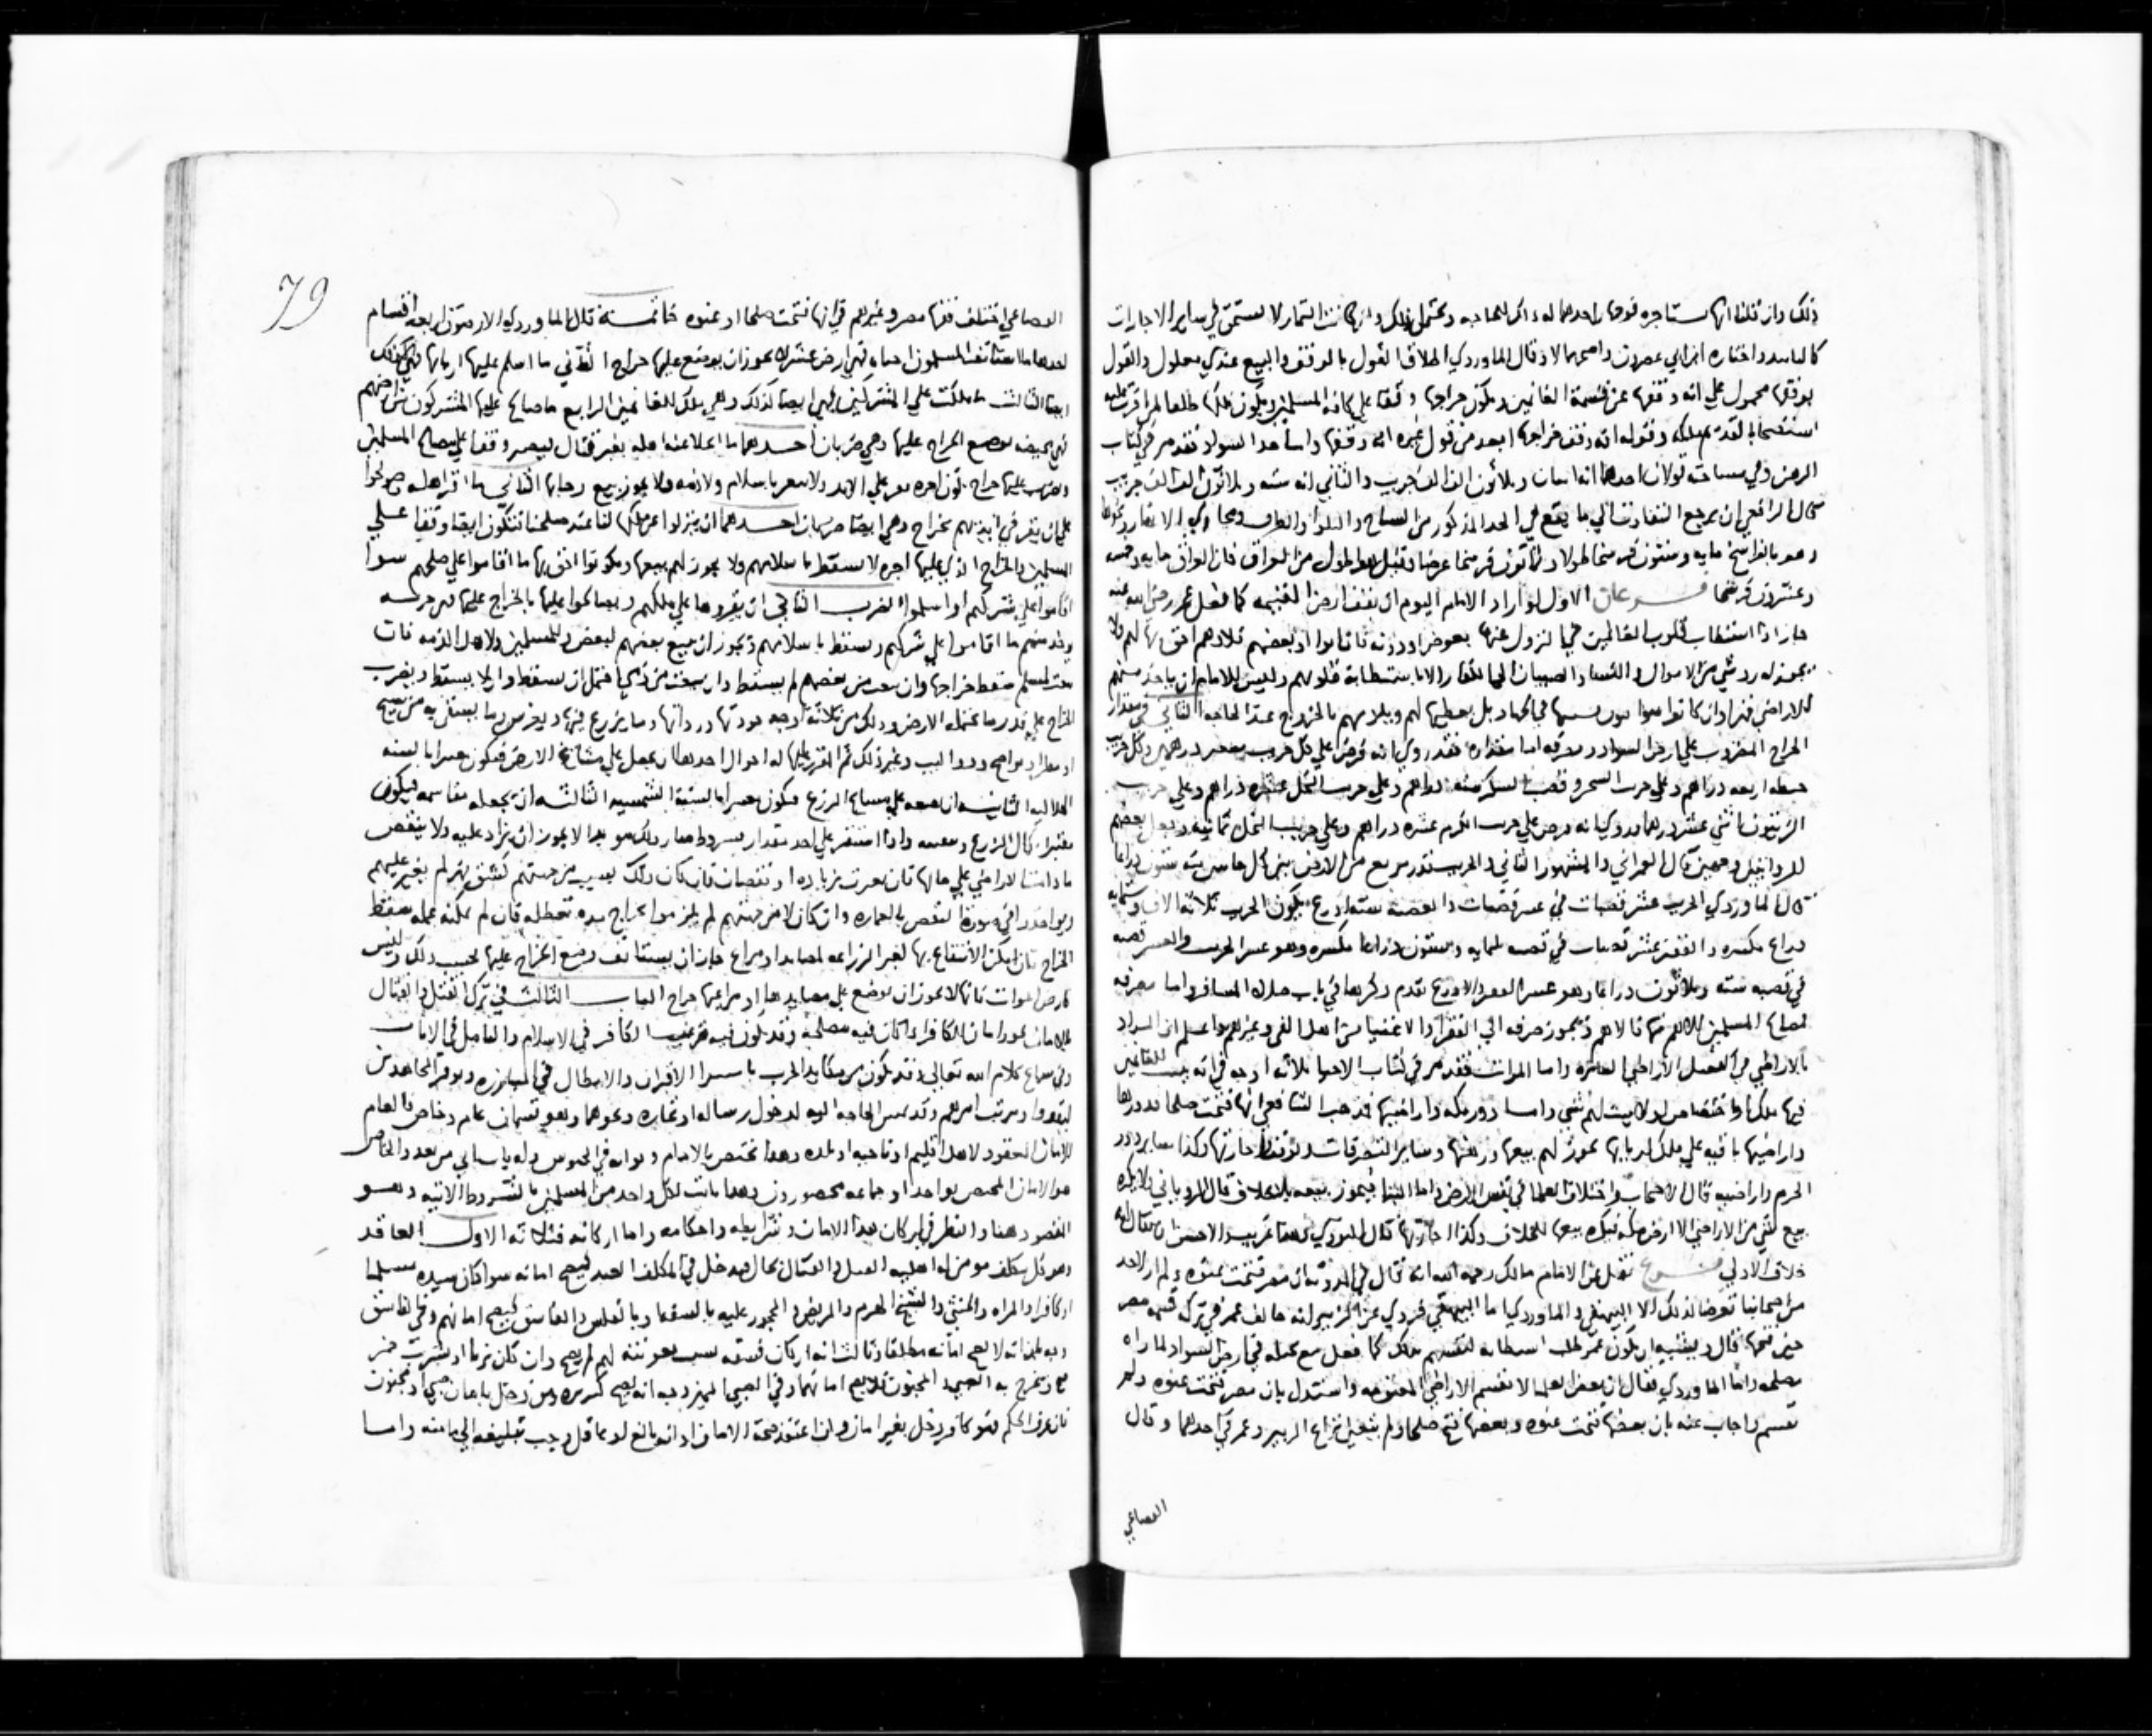 ذلك وان قلنا انها مستاجره فوجهان احدهما له ذاك للحاجه ويحتمل ذلك وان كانت الثمار لا تستحق في ساير الاجارات
واختاره ابن ابي عصرون واصحهما لا وقال الماوردي اطلاق القول بالوقف والبيع عندي معلول والقول
بوقفها محمول علي انه وقفها عن قسمة الغانمين ويكون خراجها وقفا علي كافة المسلمين ويكون ملكا
وقوله انه وقف خراجها ابعد من قول غيره انه وقفها واما حد السواد فقد مر في كتاب
الرهن وفي مساحته قولان احدهما انه اثنان وثلاثون الف الف جريب والثاني انه سته وثلاثون الف الف جريب
قال الرافعي ان يرجع التفاوت الي ما يقع في الحد المذكور من السباخ والتلول والطرق ومجاري الانهار ونحوها
وهو بالفراسخ مايه وستون فرسخا طولا وثمانون فرسخا عرضا وقيل هو اطول من العراق فان العراق مايه وخمسه
وعشرون فرسخا فرعان الاول لو اراد الامام اليوم ان يقف ارض الغنيمه كما فعل عمر رضي الله عنه
جاز اذا استطاب قلوب الغانمين في النزول عنها بعوض او دونه فان ابوا او بعضهم فلا وهم احق بها لهم ولا
يجوز له رد شي من الاموال والنساء والصبيان الي الكفار الا باستطابة قلوبهم وليس للامام ان ياخذ منهم
الاراضي قهرا وان كانوا بل يعطيها لهم ويلزمهم بالخروج عند الحاجه الثاني في مقدار
الخراج المضروب علي ارض السواد ومصرفه اما مقداره فقد روي انه فرض علي كل جريب شعير درهمين وكل جريب
حنطه اربعه دراهم وعلي جريب الشجر وقصب السكر سته دراهم وعلي جريب النخل عشره دراهم وعلي جريب
الزيتون اثني عشر درهما وروي انه فرض علي جريب الكرم عشره دراهم وعلي جريب النخل ثمانيه
قال العمراني والمشهور الثاني والجريب قدر مربع من الارض بين كل جانبين منه ستون ذراعا
قال الماوردي الجريب عشر قصبات في عشر قصبات والقصبه سته اذرع فيكون الجريب ثلاثه الاف وستمايه
ذراع مكسره والقفيز عشر قصبات في قصبه ثلثمايه وستون ذراعا مكسره وهو عشر الجريب والعشير قصبه
في قصبه سته وثلاثون ذراعا وهو عشر القفيز والاذرع تقدم ذكرها في باب صلاة المسافر واما مصرفه
فمصالح المسلمين الاهم منها فالاهم ويجوز صرفه الي الفقرا والاغنيا من اهل الفي وغيرهم واعلم ان المراد
بالاراضي في الفصل الاراضي العامره واما الموات فقد مر في كتاب الاحيا ثلاثه اوجه في انه للغانمين
فيها ملك او اختصاص او لا يثبت لهم شي واما دور مكه واراضيها فمذهب الشافعي انها فتحت صلحا فدورها
واراضيها باقيه علي ملك اربابها يجوز لهم بيعها ورهنها وساير التصرفات وكذا ساير دور
الحرم واراضيه قال الاصحاب واختلاف العلما في نفس الارض واما البنا فيجوز بيعه بلا خلاف قال الروياني ولا يكره
بيع شي من الاراضي الا ارض مكه فيكره بيعها للخلاف وكذا اجارتها قال النووي هذا غريب والاحسن ان يقال انه
خلاف الاولي فرع نقل عن الامام مالك رحمه الله انه قال في المدونه ان مصر فتحت عنوه ولم ار لاحد
من اصحابنا تعرضا لذلك الا البيهقي والماوردي اما البيهقي فروي عن الزبير انه خالف عمر في ترك قسمه مصر
حين فتحها قال ويشبه ان يكون عمر طلب استطابه لنفسهم بذلك كما فعل مع عمله في ارض السواد لما راه
مصلحه واما الماوردي فقال ان بعض العلما لا تقسم الاراضي المغنومه واستدل بان مصر فتحت عنوه ولم
تقسم واجاب عنه بان بعضها فتحت عنوه وبعضها فتح صلحا ولم يتعين نزاع الزبير وعمر في احدهما وقال
القضاعي
79
القضاعي اختلف فقها مصر وغيرهم في انها فتحت صلحا او عنوه خاتمة قال الماوردي الارضون اربعه اقسام
احدها ما استانف المسلمون احياه فهي ارض عشر لا يجوز ان يوضع عليها خراج الثاني ما اسلم عليها اربابها فهي كذلك
ايضا الثالث ما ملكت علي المشركين فهي ايضا كذلك وهي ملك للغانمين الرابع ما صالح عليها المشركون من ارضهم
فهي يختص بوضع الخراج عليها وهي ضربان احدهما ما اخلا عنه اهله بغير قتال فيصير وقفا علي مصالح المسلمين
ويضرب عليها خراج يكون اجره علي الابد ولا يتغير باسلام ولا ذمه ولا يجوز بيع رقابها الثاني ما اقر اهله وصولحوا
علي ان يقر في ايديهم بخراج وهي ايضا ضربان احدهما ان ينزلوا عن ملكها لنا عند صلحنا فتكون ايضا وقفا علي
المسلمين والخراج الذي عليها اجره لا يسقط باسلامهم ولا يجوز لهم بيعها ويكونوا احق بها ما اقاموا علي صلحهم سوا
اقاموا علي شركهم او اسلموا الضرب الثاني ان يقروها علي ملكهم ويصالحوا عليها بالخراج عليها فهي جزيه
يوخذ منهم ما اقاموا علي شركهم ويسقط باسلامهم ويجوز ان يبيع بعضهم لبعض وللمسلمين ولاهل الذمه فان
بيعت لمسلم سقط خراجها وان بيعت من بعضهم لم يسقط وان بيعت من ذمي احتمل ان يسقط وان لا يسقط ويضرب
الخراج علي قدر ما تحتمله الارض وذلك من ثلاثة اوجه جودتها ورداتها وما يزرع فيها ويغرس وما يستقي به من سيح
او مطر او نواضح ودواليب وغير ذلك ثم المقرر عليها له احوال احدها ان يجعل علي مشايع الارض فيكون معتبرا بالسنه
الهلاليه الثانيه ان يجعله علي مساح الزرع فيكون معتبرا بالسنة الشمسيه الثالثه ان يجعله مقاسمه فيكون
معتبرا بكمال الزرع وتصفيته واذا استقر علي احد مقدار بشروطه صار ذلك موبدا لا يجوز ان يزاد عليه ولا ينقص
ما دامت الاراضي علي حالها فان تغيرت بزياده او نقصان فان كان ذلك بسبب من جهتهم كشق نهر لم يغير عليهم
ويواخذوا في صورة النقص بالعماره وان كان لا من جهتهم لم يلزموا بخراج مده تعطله فان لم يمكنه عمله سقط
الخراج فان امكن الانتفاع بها لغير الزراعه لمصايد او مراع جاز ان يستانف وضع الخراج عليها بحسب ذلك وليس
كارض الموات فانها لا يجوز ان يوضع علي مصايدها او مراعيها خراج الباب الثالث في ترك القتل والقتال
بالامان يجوز امان الكافر اذا كان فيه مصلحه وقد يكون فيه ترغيب الكافر في الاسلام والتامل في الايات
وفي سماع كلام الله تعالي وقد يكون من مكايد الحرب
وقد تمس الحاجه اليه لدخول رساله او تجاره ونحوهما وهو قسمان عام وخاص فالعام
الامان المعقود لاهل اقليم او ناحيه او بلده وهذا يختص بالامام ونوابه وله باب ياتي من بعد والخاص
هو الامان المختص بواحد او جماعه محصورون وهذا ثابت لكل واحد من المسلمين بالشروط الاتيه وهو
المقصود هنا والنظر في اركان هذا الامان وشرايطه واحكامه واما اركانه فثلاثه الاول العاقد
وهو كل مكلف مومن له اهلية القتل والقتال بحال فيدخل في المكلف العبد فيصح امانه سوا كان سيده مسلما
او كافرا والمراه والخنثي والشيخ الهرم والمريض والمحجور عليه بالسفه وبالفلس والفاسق فيصح امانهم وفي الفاسق
وجه انه لا يصح امانه مطلقا وثالث انه ان كان فسقه بسبب معونته لهم لم يصح وان كان بزنا او شرب خمر
صح ويخرج به الصبي والمجنون فلا يصح امانهما وفي الصبي المميز وجه انه يصح كتدبيره ومن دخل بامان صبي او مجنون
فان عرف الحكم فهو كافر دخل بغير امان وان اعتقد صحة الامان او انه بالغ او عاقل وجب تبليغه الي مامنه واما